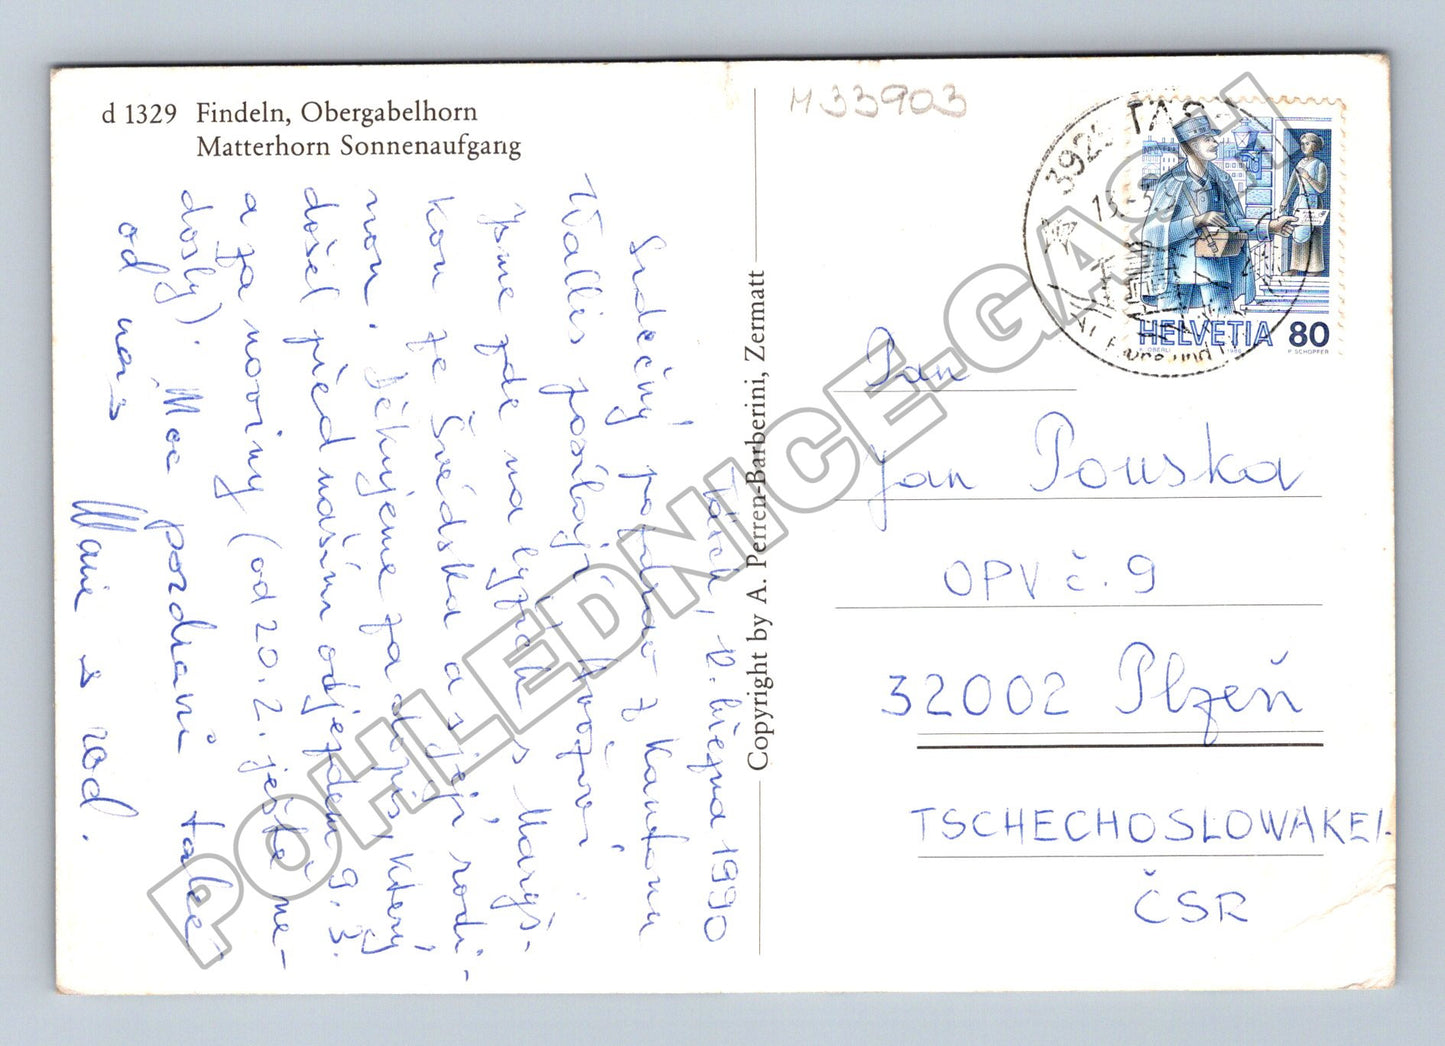 d 1329 Findeln, Obergabelhorn
Matterhorn Sonnenaufgang
M33903
Täsch, 12. března 1990
Srdečný pozdrav z Kantonu
Wallis posílají
jsme zde na lyžích s Maryš-
kou ze Švédska a s její rodi-
nou. Děkujeme za dopis, který
došel před naším odjezdem 9.3.
a za noviny (od 20.2. ještě ne-
došly). Moc pozdravů také
od nás
Marie s rod.
Copyright by A. Perren-Barberini, Zermatt
3929 TÄSCH
13.-3.
HELVETIA 80
K. OBERLI 1986 P. SCHOPFER
Pan
Jan Pouska
OPV č. 9
32002 Plzeň
TSCHECHOSLOWAKEI-
ČSR
POHLEDNICE.GASH